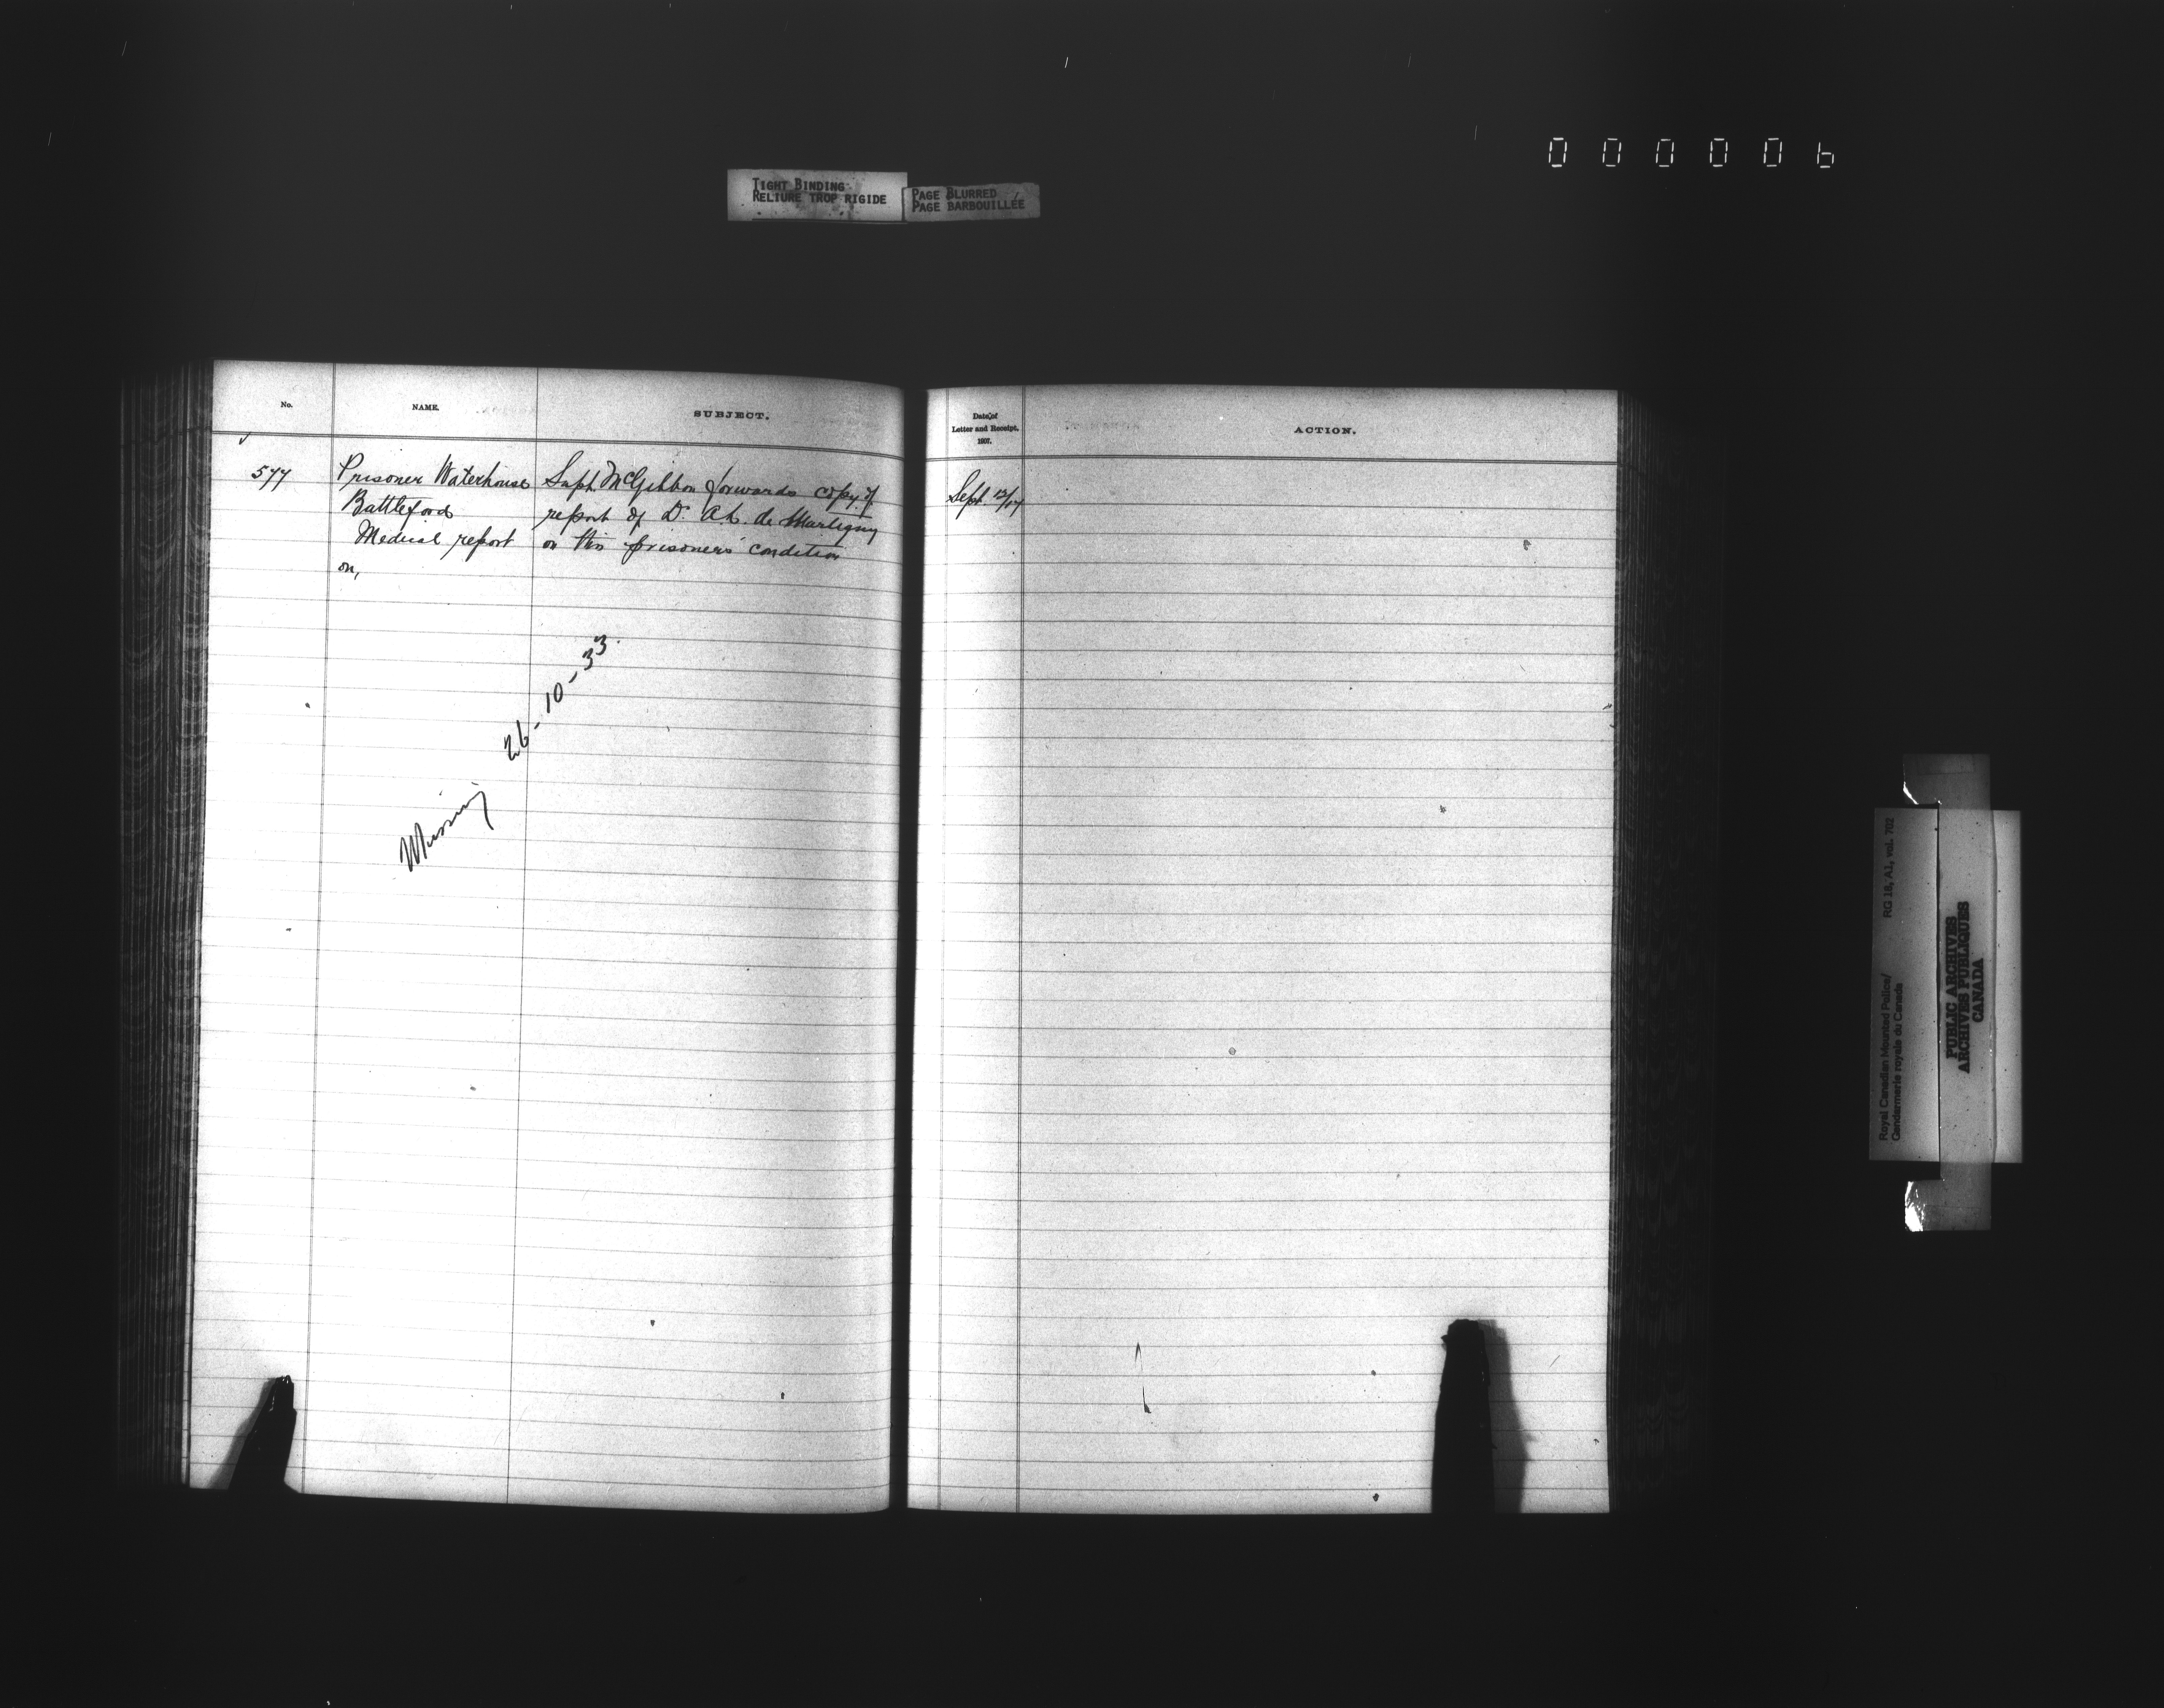 0 0 0 0 0 6
TIGHT BINDING
RELIURE TROP RIGIDE
PAGE BLURRED
PAGE BARBOUILLÉE
No.
NAME.
SUBJECT.
577
Prisoner Waterhouse
Battleford
Medical report
on,
Supt. McGibbon forwards copy of
report of Dr. A. L. de Martigny
on this prisoners' condition
Missing 26-10-33.
Date of
Letter and Receipt.
1907.
ACTION.
Sept. 12/17
Royal Canadian Mounted Police/
Gendarmerie royale du Canada
RG 18, A1, vol. 702
PUBLIC ARCHIVES
ARCHIVES PUBLIQUES
CANADA